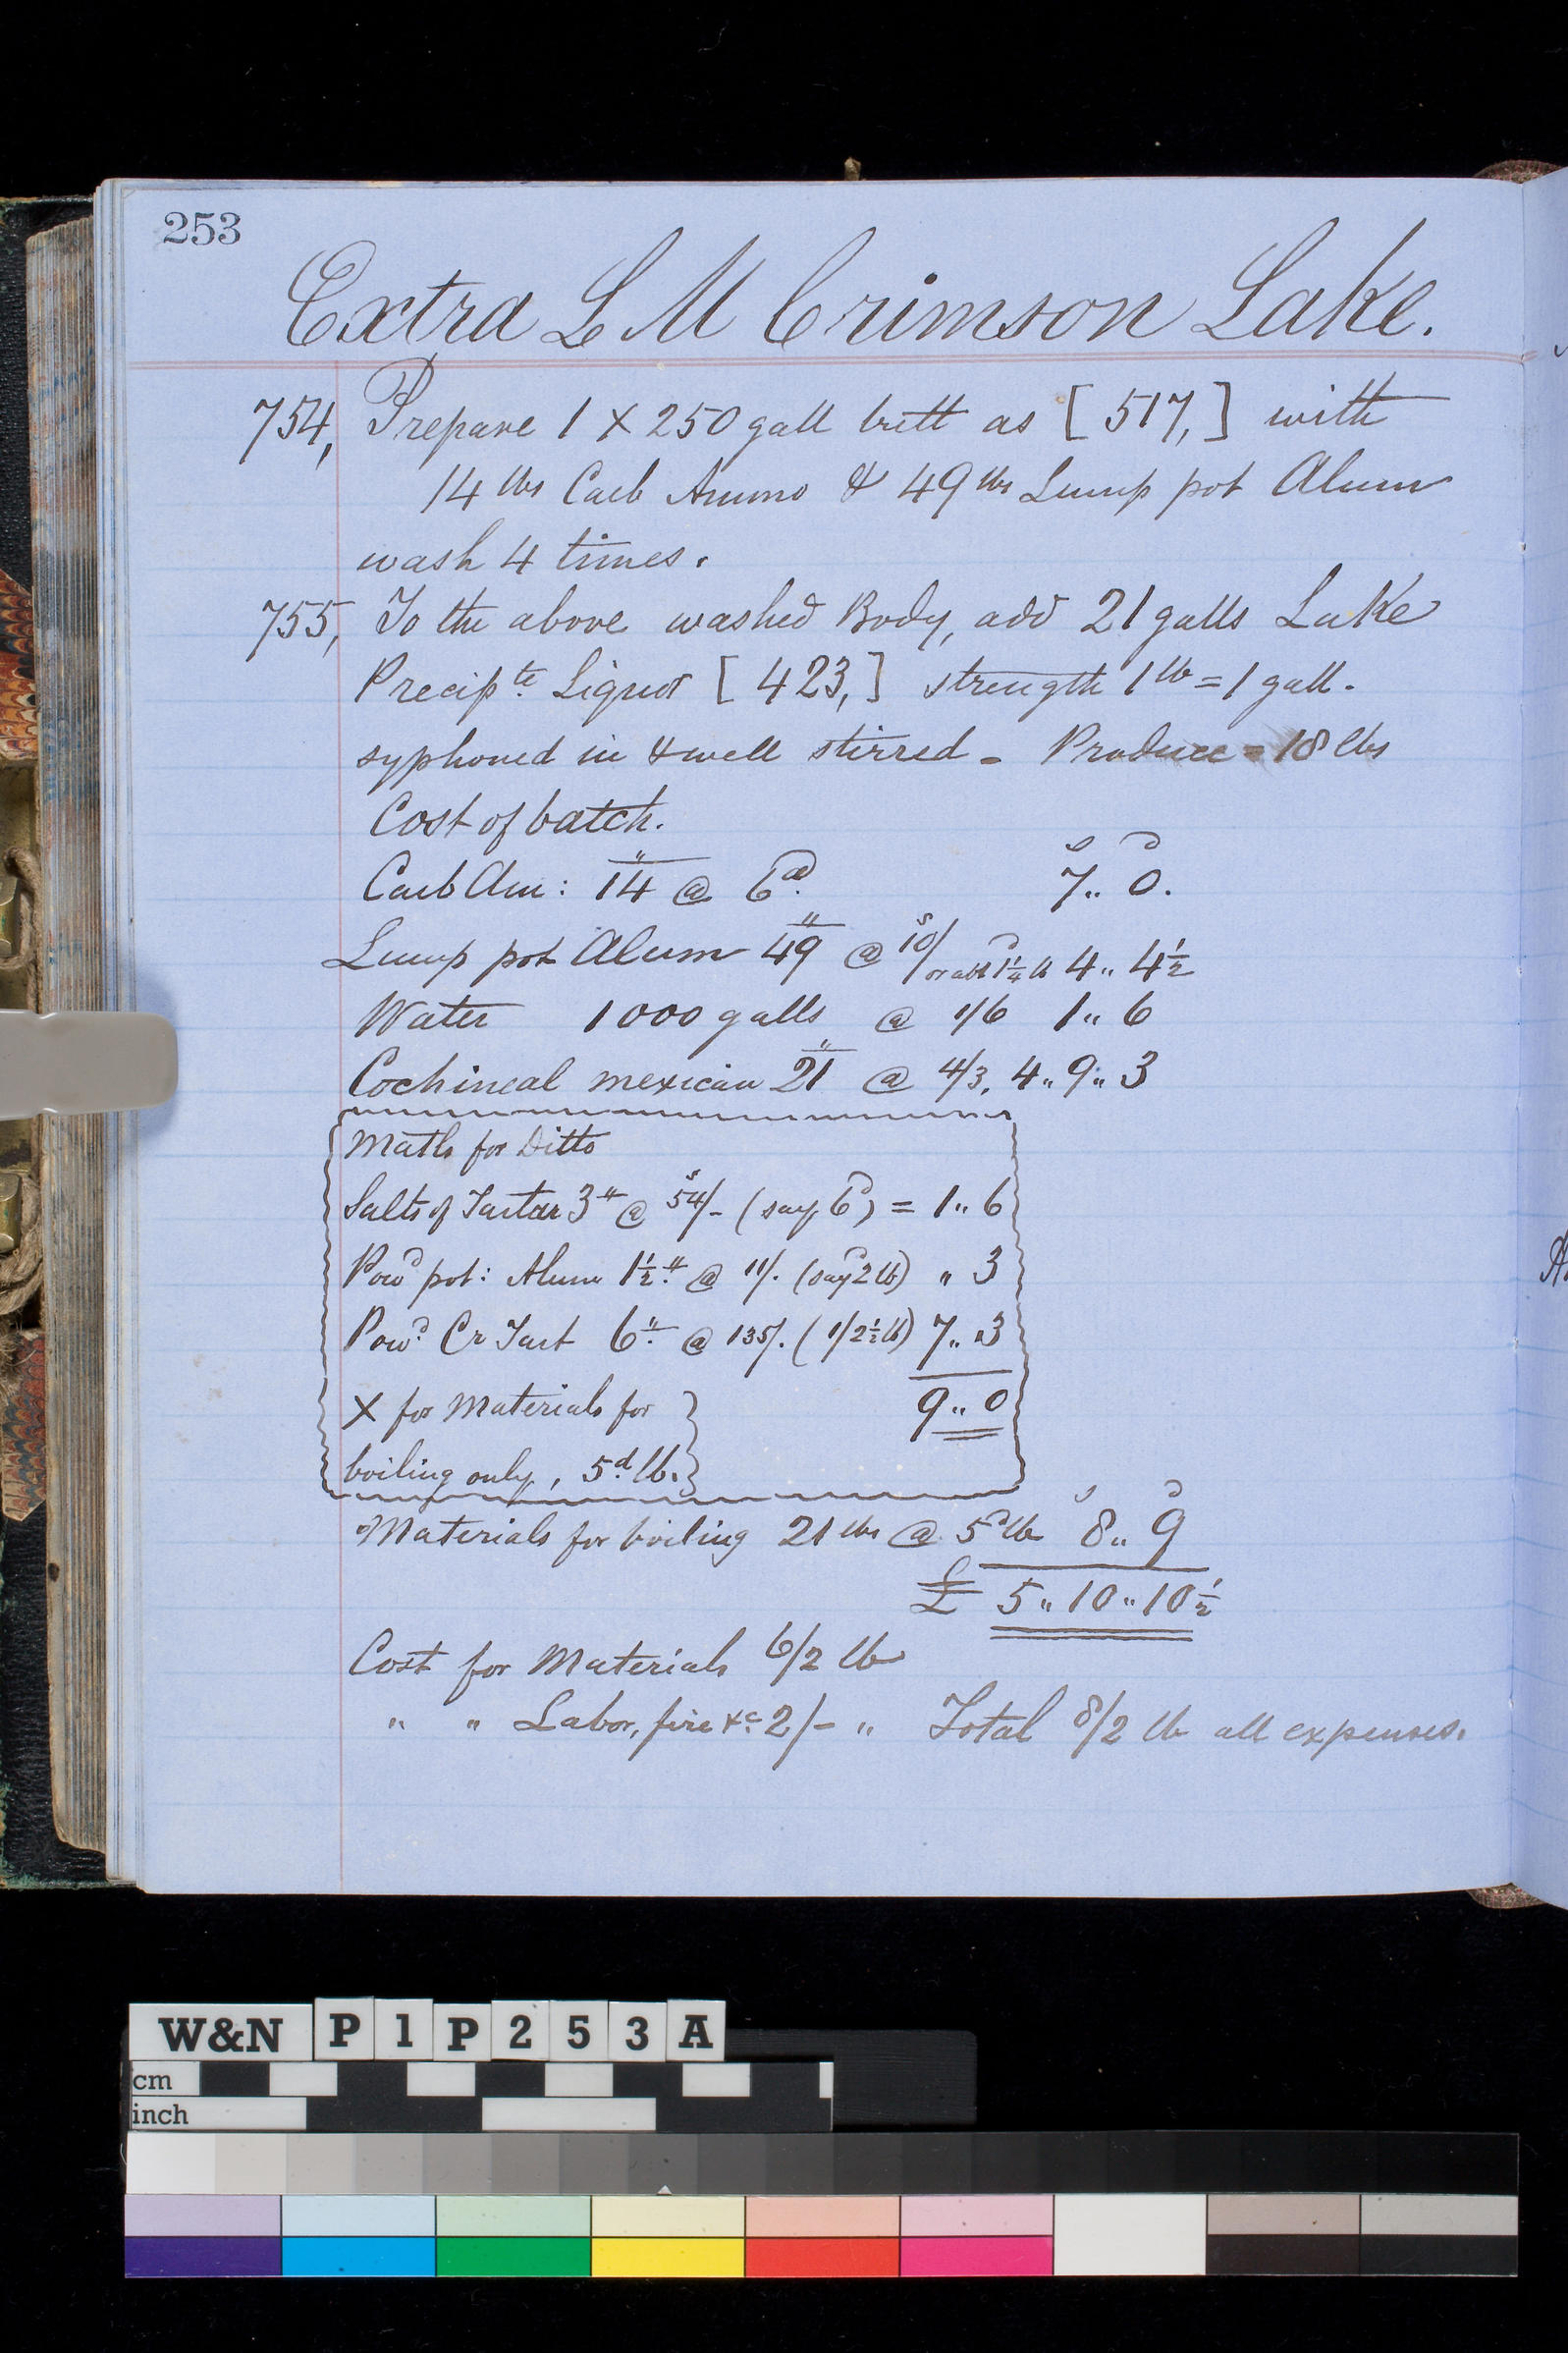 253
Extra L M Crimson Lake.
754, Prepare 1 X 250 gall butt as [517,] with
14 lbs Carb Ammo & 49 lbs Lump pot Alum
wash 4 times.
755, To the above washed Body, add 21 galls Lake
Precipte Liquor [423,] strength 1 lb = 1 gall.
syphoned in & well stirred - Produce = 18 lbs
Cost of batch.
s d
Carb Am: 14" @ 6d. 7„ 0.
Lump pot Alum 49" @ 10s/ or abt 1¼d lb 4„ 4½
Water 1000 galls @ 1/6 1„ 6
Cochineal mexican 21" @ 4/3, 4„ 9„ 3
Matls for Ditto
Salts of Tartar 3" @ 54s/- (say 6d) = 1„ 6
Powd pot: Alum 1½" @ 11/. (say 2d lb) „ 3
Powd Cr Tart 6" @ 135/. (1/2½ lb) 7„ 3
X for Materials for 9„ 0
boiling only, 5d lb.
s d
Materials for boiling 21 lbs @ 5d lb 8„ 9
£ 5„ 10„ 10½
Cost for Materials 6/2 lb
„ „ Labor, fire &c 2/- „ Total 8/2 lb all expenses.
W&N P 1 P 2 5 3 A
cm
inch